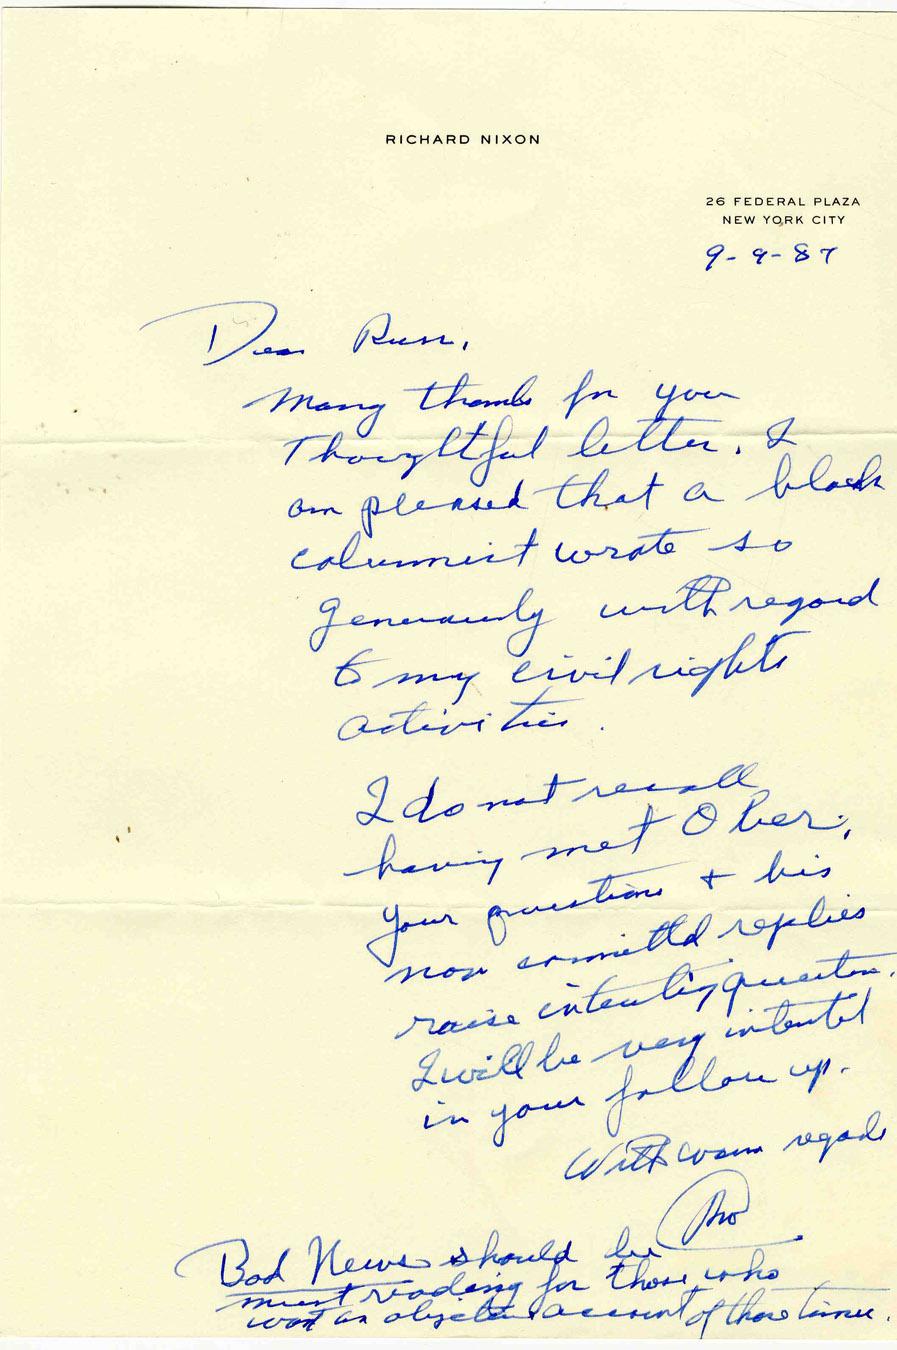 RICHARD NIXON
26 FEDERAL PLAZA
NEW YORK CITY
9-9-87
Dear Russ,
Many thanks for your
Thoughtful letter. I
am pleased that a black
columnist wrote so
generously with regard
to my civil rights
activities.
I do not recall
having met Ober,
your questions + his
non committal replies
raise interesting questions.
I will be very interested
in your follow up.
With warm regards
RN
Bad News should be
must reading for those who
want an objective account of those times.